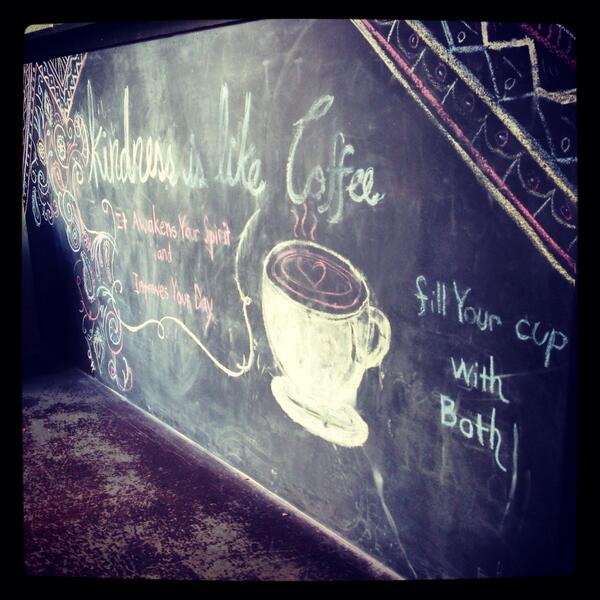 kindness is like Coffee
It Awakens Your Spirit
and
Improves Your Day
fill Your cup
with
Both